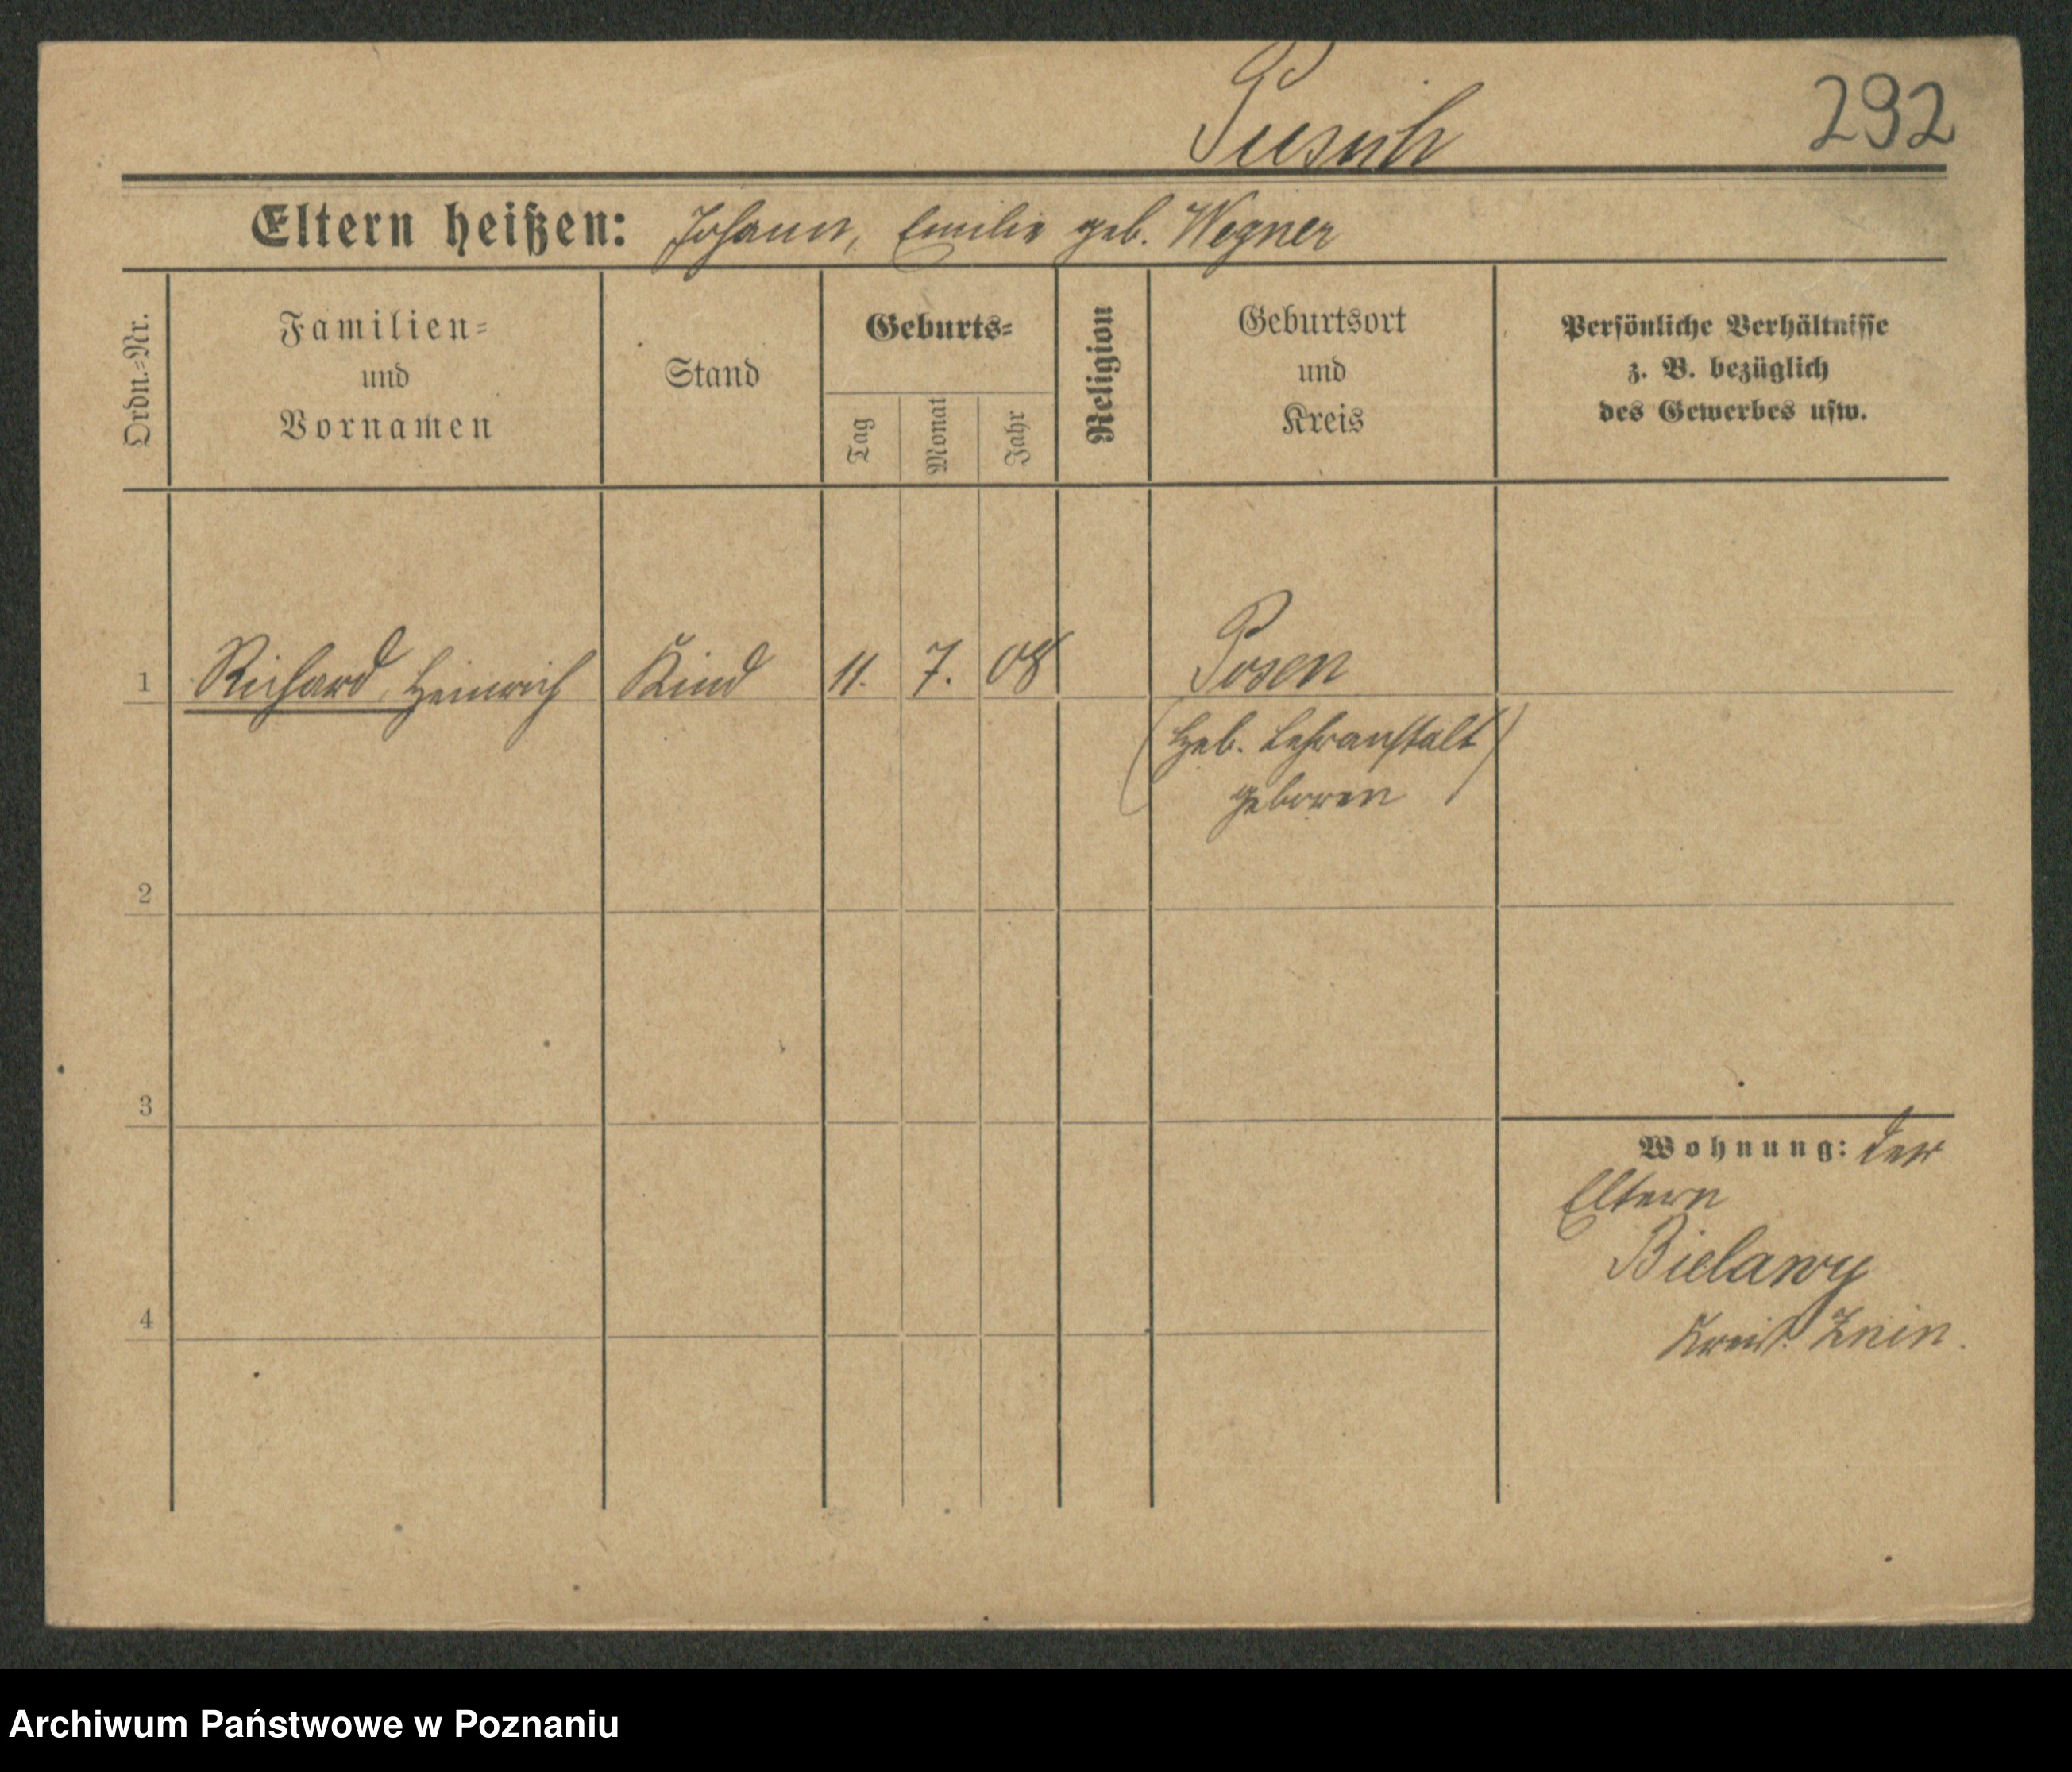 292
Eltern heißen: Johann, Emilie geb. Wegner
Ordn.=Nr.
Familien=
und
Vornamen
Stand
Geburts=
Tag
Monat
Jahr
Religion
Geburtsort
und
Kreis
Persönliche Verhältnisse
z. B. bezüglich
des Gewerbes usw.
1 Richard, Heinrich Kind 11. 7. 08 Posen
(Heb. Lehranstalt)
geboren
2
3
Wohnung: der
Eltern
Bielawy
Kreis Znin.
4
Archiwum Państwowe w Poznaniu